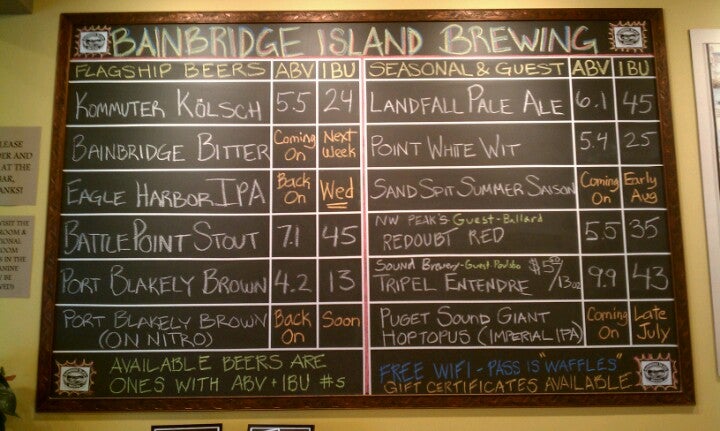 BAINBRIDGE ISLAND BREWING
FLAGSHIP BEERS ABV IBU
KOMMUTER KÖLSCH 5.5 24
BAINBRIDGE BITTER Coming On Next Week
EAGLE HARBOR IPA Back On Wed
BATTLE POINT STOUT 7.1 45
PORT BLAKELY BROWN 4.2 13
PORT BLAKELY BROWN (ON NITRO) Back On Soon
AVAILABLE BEERS ARE
ONES WITH ABV + IBU #s
SEASONAL & GUEST ABV IBU
LANDFALL PALE ALE 6.1 45
POINT WHITE WIT 5.4 25
SAND SPIT SUMMER SAISON Coming On Early Aug
NW PEAK'S - Guest - Ballard
REDOUBT RED 5.5 35
SOUND Brewery - Guest Poulsbo $5.50/13oz
TRIPEL ENTENDRE 9.9 43
PUGET SOUND GIANT
HOPTOPUS (IMPERIAL IPA) Coming On Late July
FREE WIFI - PASS IS "WAFFLES"
GIFT CERTIFICATES AVAILABLE
PLEASE
AND
AT THE
BAR,
VISIT THE
ROOM &
ROOM
IN THE
BE